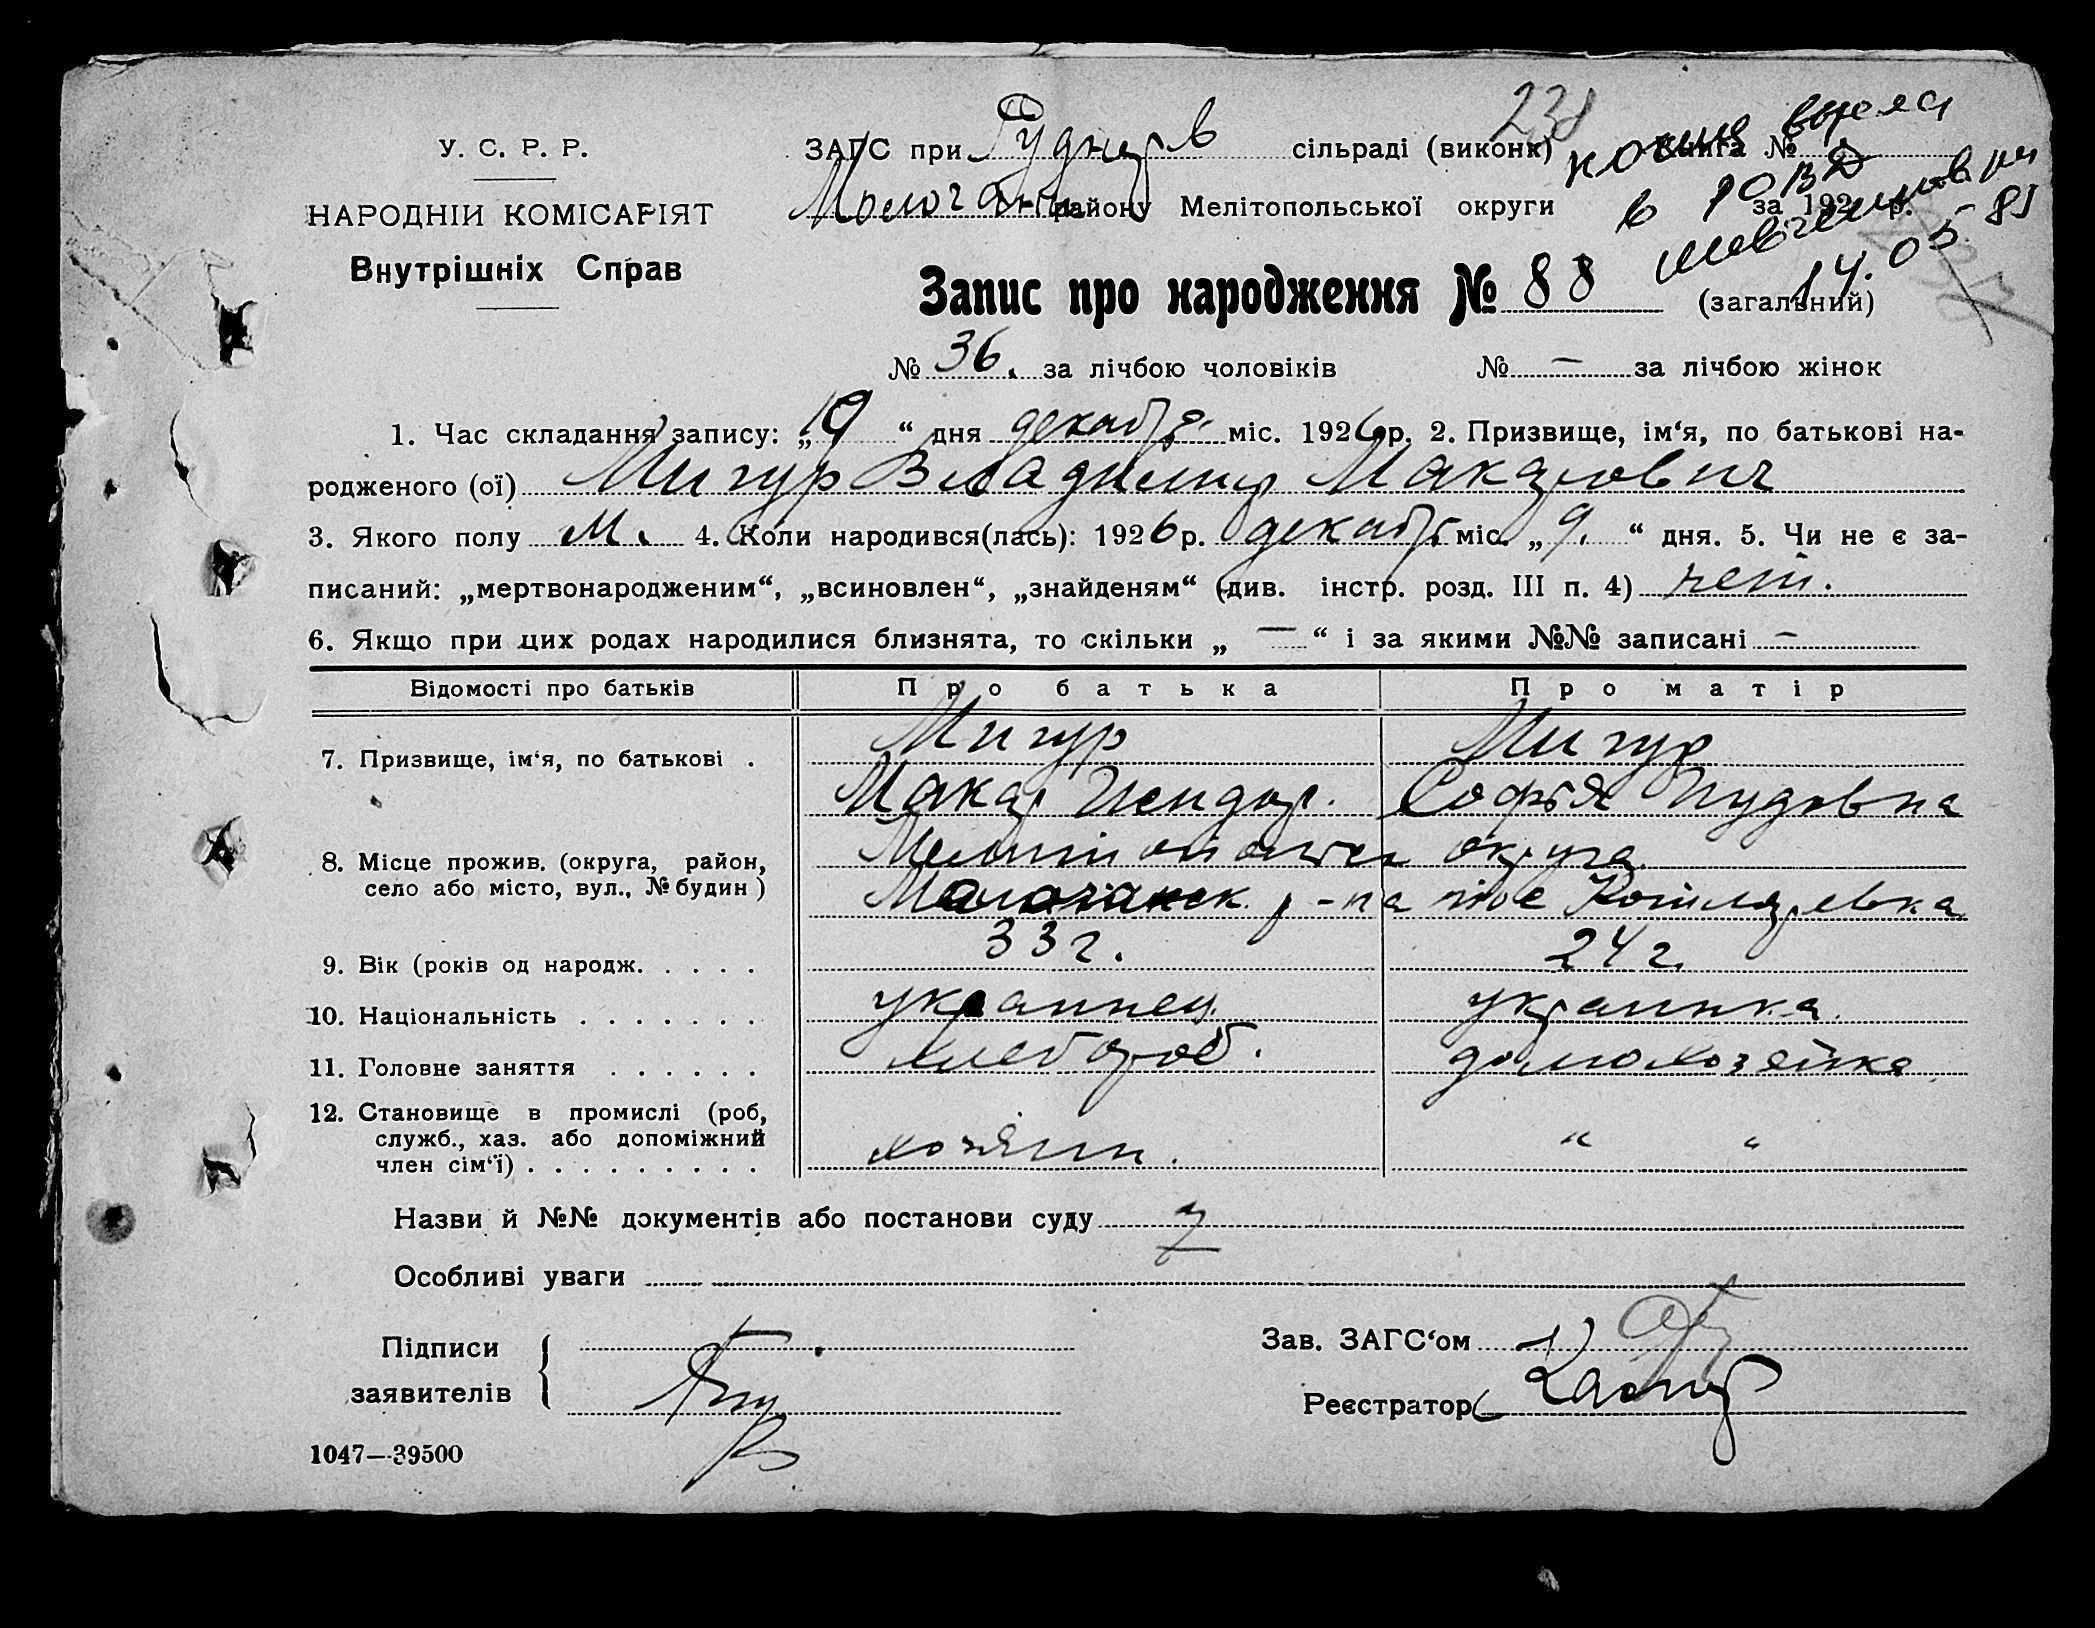 238
У. С. Р. Р.
НАРОДНІЙ КОМІСАРІЯТ
Внутрішніх Справ
ЗАГС при Рудн сільраді (виконк) Книга №
копия
в РОВД
14.05.81
Молочан району Мелітопольської округи за 192 р.
Запис про народження № 88 (загальний)
№ 36. за лічбою чоловіків № — за лічбою жінок
1. Час складання запису: „19“ дня декабр міс. 1926 р. 2. Призвище, ім‘я, по батькові на-
родженого (ої) Мигур Владимир Макарович
3. Якого полу м. 4. Коли народився(лась): 1926 р. декабр міс. „9.“ дня. 5. Чи не є за-
писаний: „мертвонародженим“, „всиновлен“, „знайденям“ (див. інстр. розд. III п. 4) нет.
6. Якщо при цих родах народилися близнята, то скільки „ — “ і за якими №№ записані —
Відомості про батьків Про батька Про матір
7. Призвище, ім‘я, по батькові . Мигур Мигур
Макар Исидор. Софья Иудовна
8. Місце прожив. (округа, район, округа
село або місто, вул., № будин) Молочанск. р-на Котляревка
9. Вік (років од народж. . . . . 33 г. 24 г.
10. Національність . . . . . . . украинец. украинка.
11. Головне заняття . . . . . . хлебороб. домохозяйка
12. Становище в промислі (роб,
служб., хаз. або допоміжний
член сім‘ї) . . . . . . . . . хозяин. “ “
Назви й №№ документів або постанови суду
Особливі уваги
Підписи
заявителів
Зав. ЗАГС‘ом
Реєстратор
1047—39500